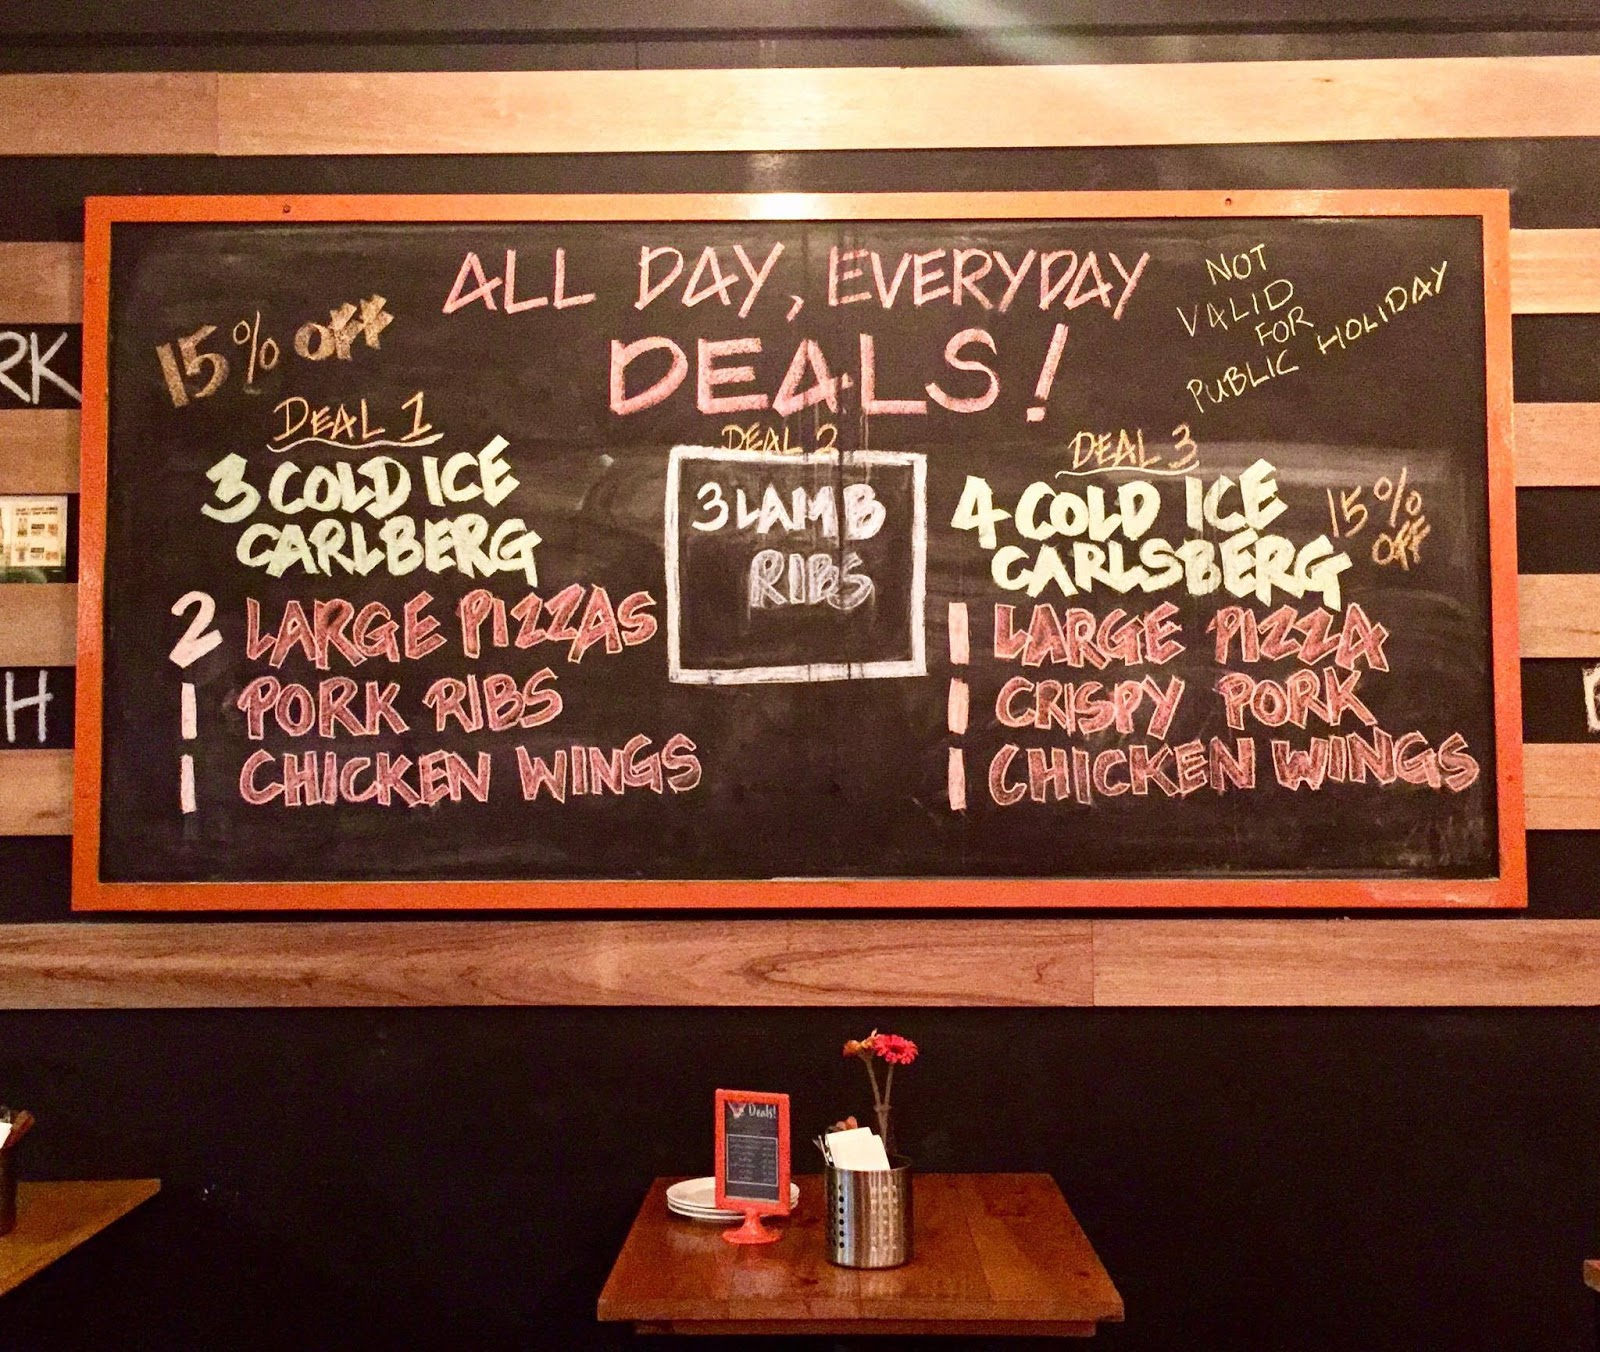 ALL DAY, EVERYDAY
DEALS!
NOT
VALID
FOR
PUBLIC HOLIDAY
15% OFF
DEAL 1
3 COLD ICE
CARLBERG
2 LARGE PIZZAS
1 PORK RIBS
1 CHICKEN WINGS
DEAL 2
3 LAMB
RIBS
DEAL 3
4 COLD ICE
CARLSBERG
15%
OFF
1 LARGE PIZZA
1 CRISPY PORK
1 CHICKEN WINGS
RK
H
Deals!